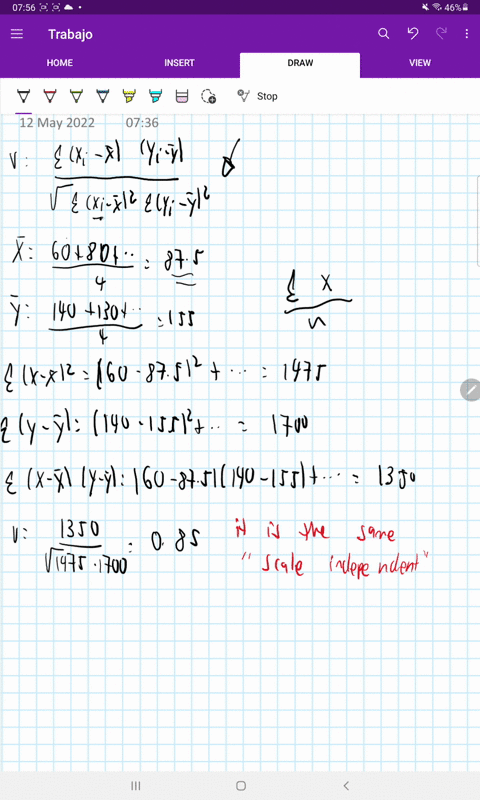 07:56 46%
Trabajo
HOME INSERT DRAW VIEW
Stop
12 May 2022 07:36
r: Σ(xi - x̄) (yi - ȳ)
√Σ(xi - x̄)² Σ(yi - ȳ)²
X̄: 60+80+.. / 4 = 87.5
Σ X / n
Ȳ: 140+130+.. / 4 = 155
Σ(x-x̄)² = (60-87.5)² + ... = 1475
Σ(y-ȳ): (140-155)² + .. = 1700
Σ(x-x̄)(y-ȳ): (60-87.5)(140-155)+... = 1350
r: 1350 / √1475·1700 = 0.85
it is the same
"scale independent"